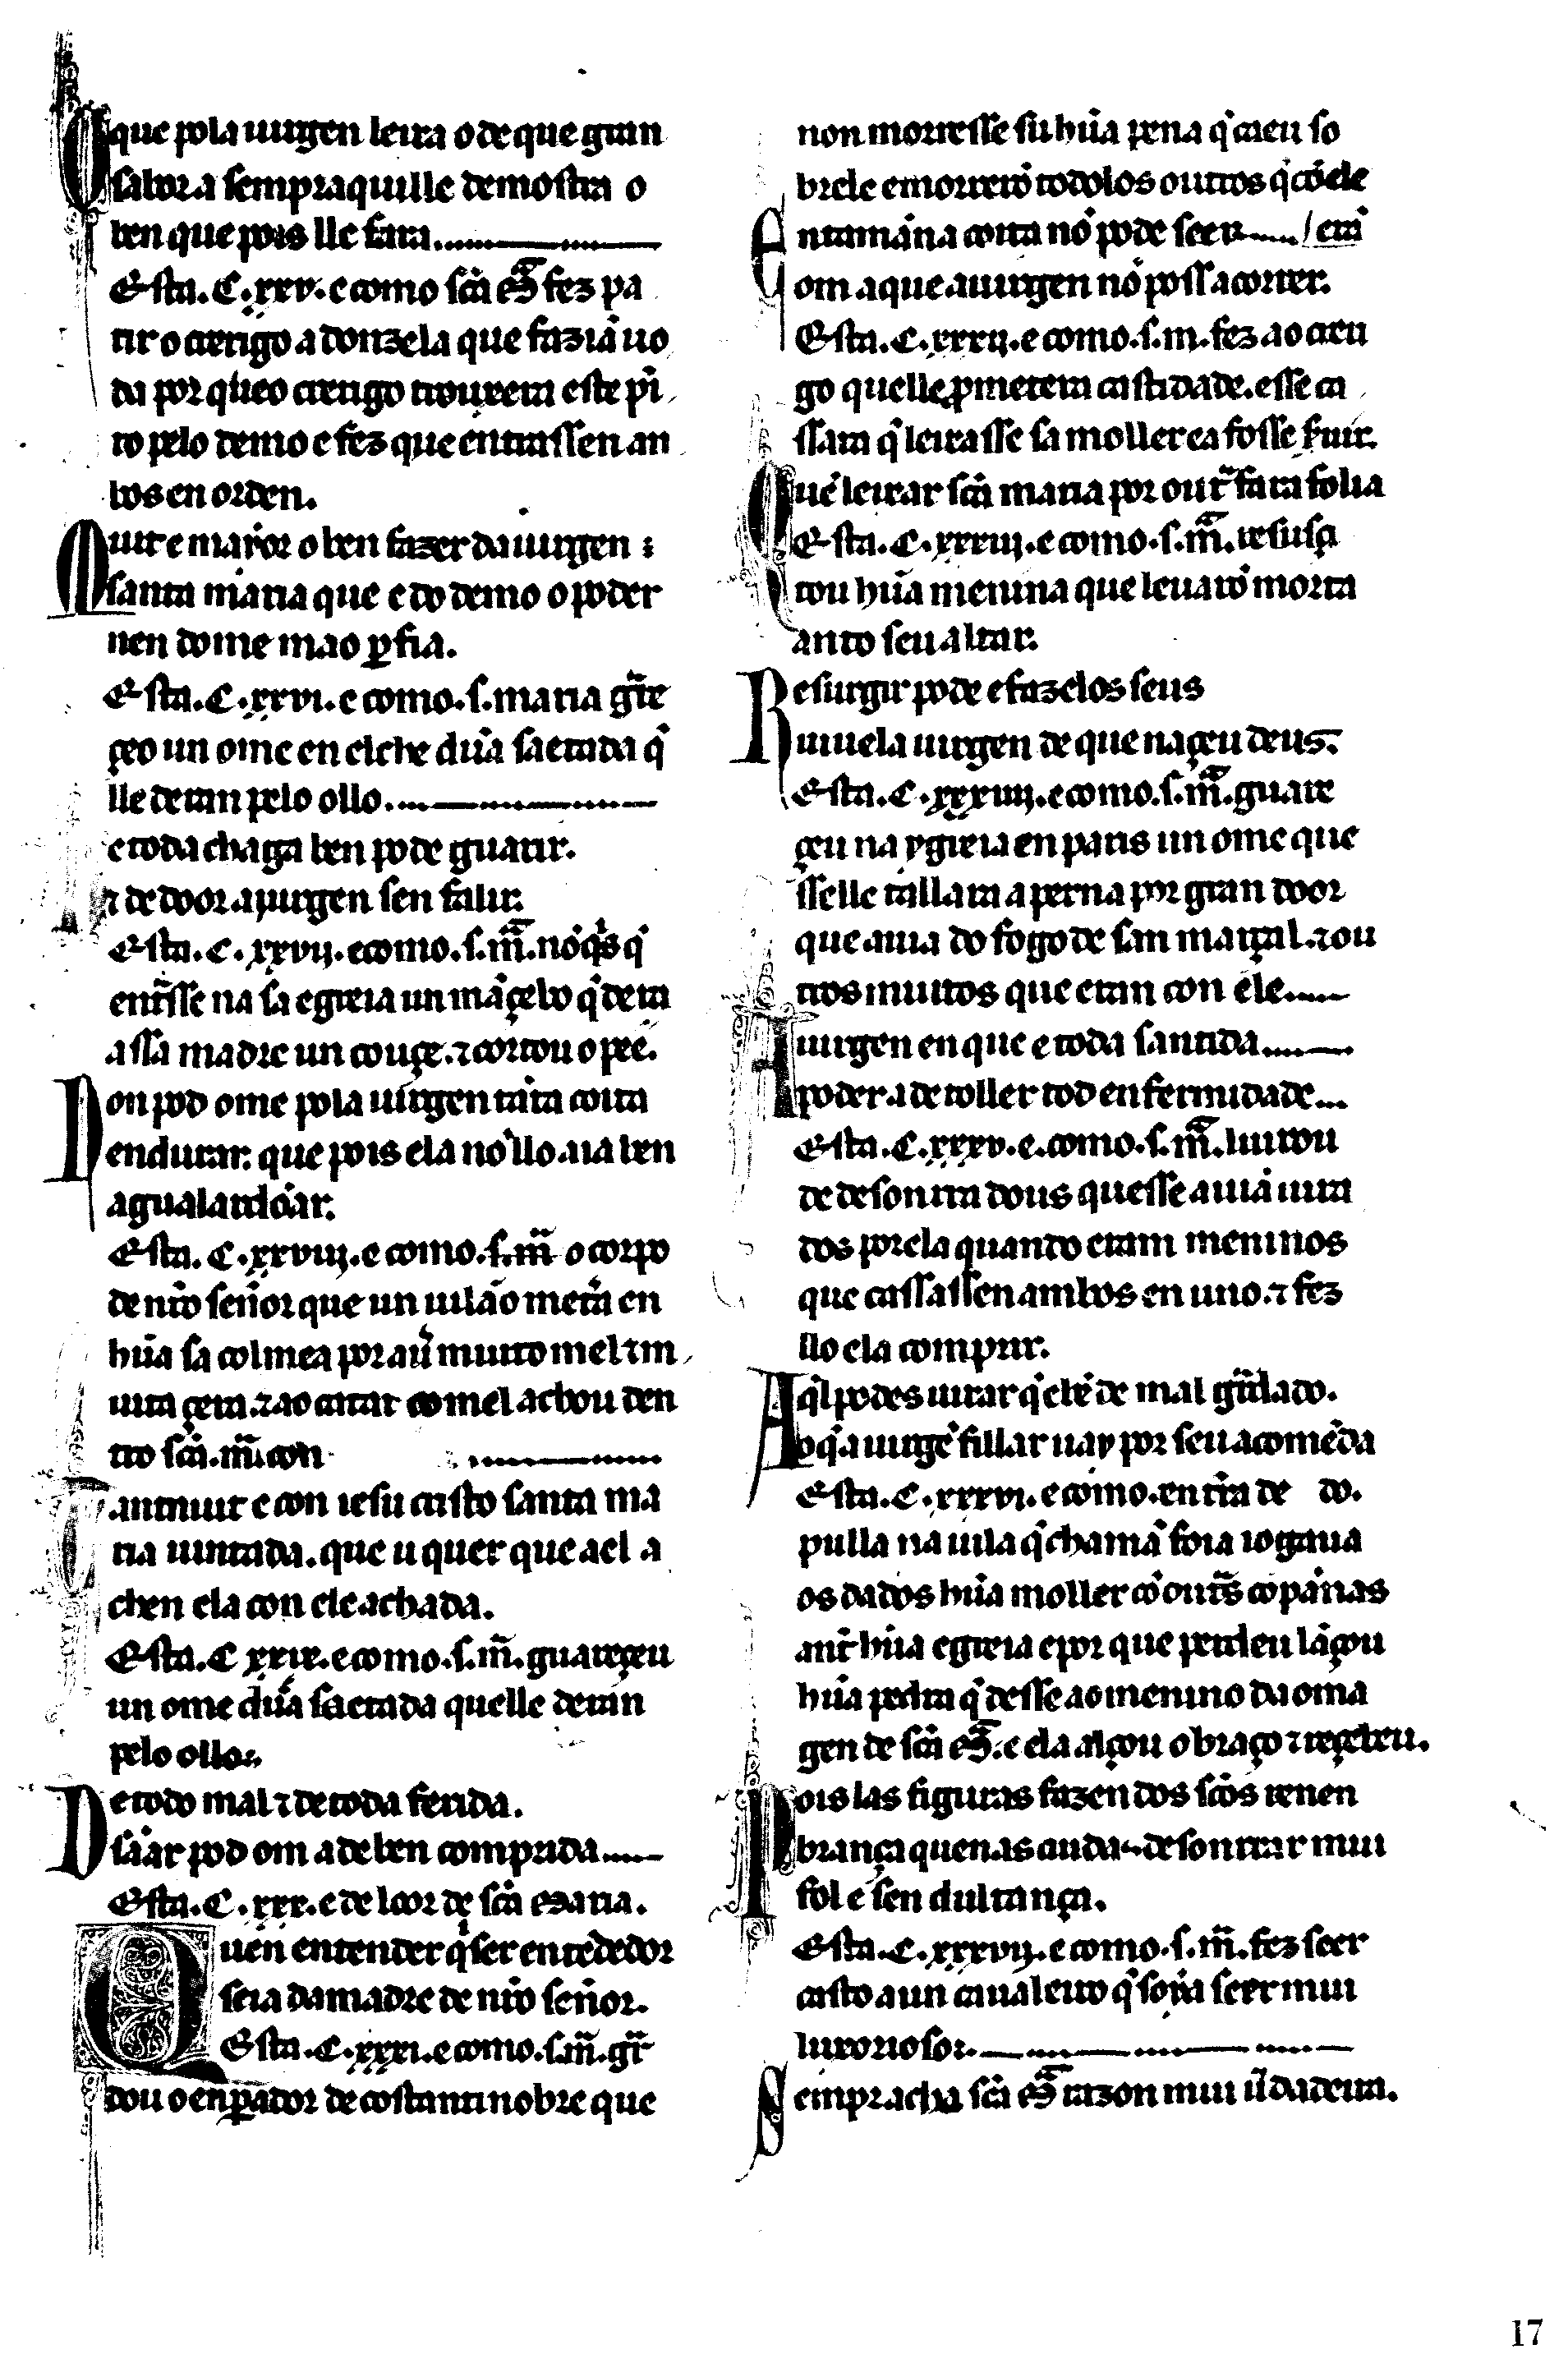 O que pola uirgen leixa o de que gran
sabor a sempr aqui lle demostra o
ben que pois lle fara.
Esta .C.xxv. e como sc̃a M̃ fez pa
rtir o crerigo a donzela que fazia uo
da por q̇ueo crerigo trouxera este pi
to pelo demo e fez que entrassen an
bos en orden.
Muit e mayor o ben fazer da uirgen
santa maria que e do demo o poder
nen dome mao ꝑfia.
Esta .C.xxvi. e como .s. maria gr̃e
çeo un ome en elche dũa saetada q̇
lle deran pelo ollo.
e toda chaga ben pode guarir.
a de door a uirgen sen falir.
Esta .C.xxvij. e como .s.m̃. nõ q̇s q̇
entr̃sse na sa egreia un mãçebo q̇ dera
a ssa madre un couçe. ⁊ cortou o pee.
Non pod ome pola uirgen tãta coita
endurar: que pois ela nõ llo aia ben
agualardõar.
Esta .C.xxviij. e como .s.m̃ o corpo
de nr̃o señor que un uilão metera en
hũa sa colmea por auer muito mel ⁊ m
uita çera. ⁊ ao catar o mel achou den
tro sc̃a .m̃. con
Tan muit e con iesu cristo santa ma
ria iuntada. que u quer que a el a
chen ela con ele achada.
Esta .C xxix. e como .s.m̃. guareçeu
un ome dũa saetada quelle deran
pelo ollo.
De todo mal ⁊ de toda ferida.
sãar pod om a de ben comprida
Esta .C.xxx. e de loor de sc̃a Maria.
Quen entender q̇ser entẽdedor
seia da madre de nr̃o señor.
Esta .C.xxxi. e como .s.m̃. gr̃
dou o enꝑador de costantinobre que
non morresse su hũa pena q̇ caeu so
brele e morrerõ todolos outros q̇ cõ ele
E n tamãna coita nõ pode seer / erã
om a que a uirgen nõ poss acorrer.
Esta .C.xxxij. e como .s.m. fez ao creri
go quelle ꝓmetera castidade. e sse ca
ssara q̇ leixasse sa moller e a fosse seruir.
Quẽ leixar sc̃a maria por outr̃ fara folia
Esta .C.xxxiij. e como .s.m̃. resusçi
tou hũa menina que leuarõ morta
anto seu altar.
Resurgir pode e fazelos seus
uiuela uirgen de que naçeu deus.
Esta .C.xxxiiij. e como .s.m̃. guare
çeu na ygreia en paris un ome que
sselle tallara a perna por gran door
que auia do fogo de san marçal. ⁊ ou
tros muitos que eran con ele.
A uirgen en que e toda santida
poder a de toller tod enfermidade
Esta .C.xxxv. e. como .s.m̃. liurou
de desonrra dous quesse auiã iura
dos porela quando eram meninos
que cassassen ambos en uno. ⁊ fez
llo ela comprir.
Aq̇l podes iurar q̇ bẽ e de mal gr̃dado.
o q̇ a uirgẽ fillar uay por seu acomẽda
Esta .C.xxxvi. e como .en terra de do.
pulla na uila q̇ chamã foia iogaua
os dados hũa moller cõ outr̃s cõpãnas
ant̃ hũa egreia e por que perdeu lãçou
hũa pedra q̇ desse ao menino da oma
gen de sc̃a M̃. e ela alçou o braço ⁊ reçebeu.
Pois las figuras fazen dos sc̃os renen
brança quen as cuda a desonrrar mui
fol e sen dultança.
Esta .C.xxxvij. e como .s.m̃. fez seer
casto a un caualeiro q̇ soya seer mui
luxorioso.
Sempr acha sc̃a M̃ razon mui uerdadeira.
17